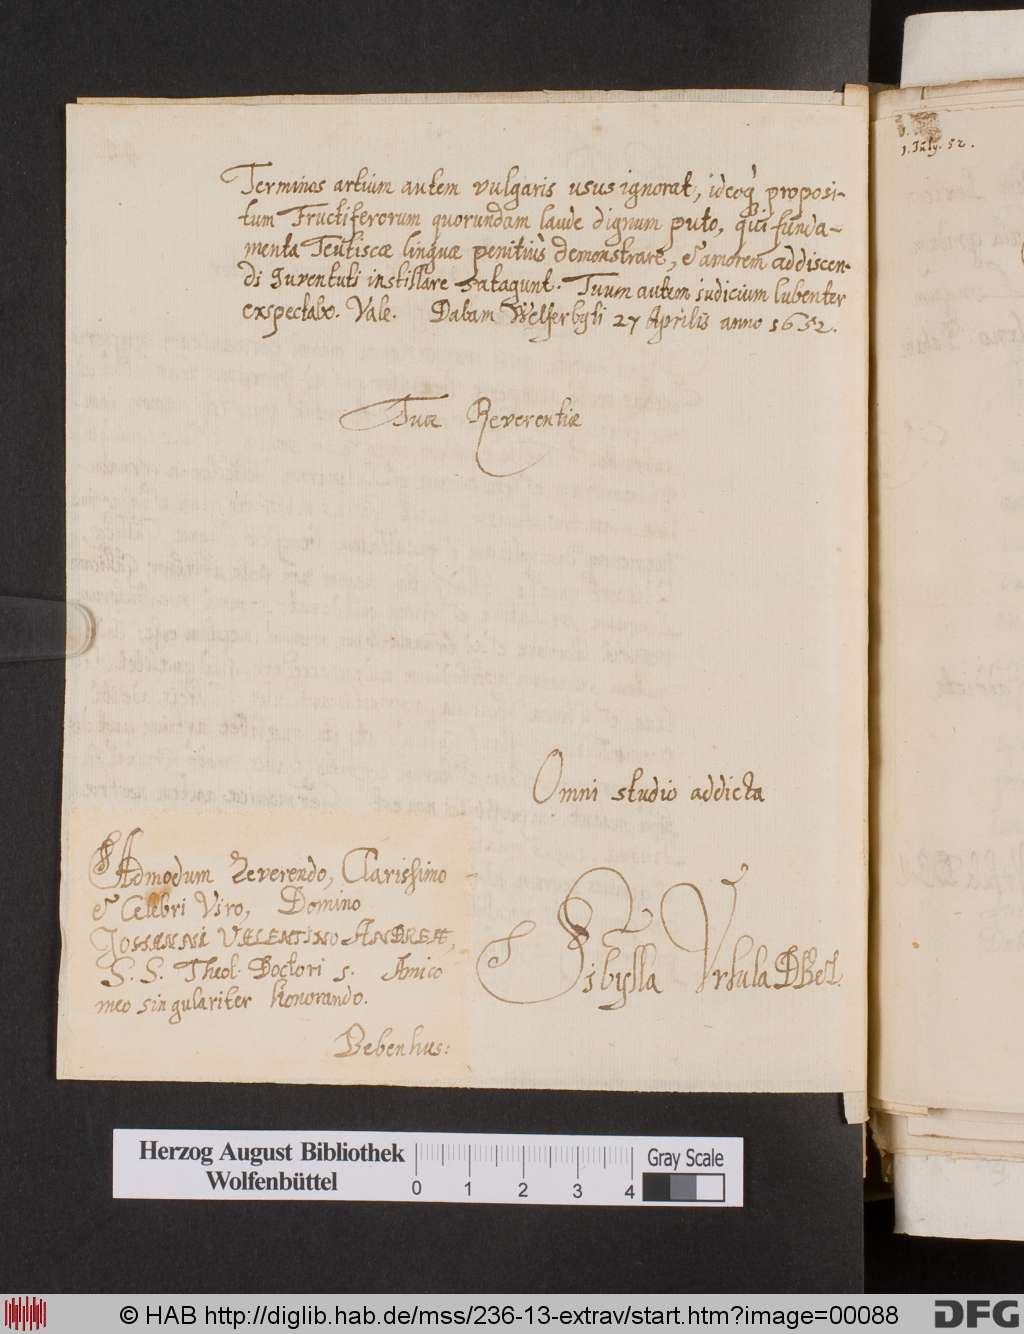 Terminos artium autem vulgaris usus ignorat, ideoq́ proposi-
tum Fructiferorum quorundam laude dignum puto, qui funda-
menta Teutiscæ linguæ penitiùs demonstrare, & amorem addiscen-
di Juventuti instillare satagunt. Tuum autem judicium lubenter
exspectabo. Vale. Datam Welferbyti 27 Aprilis anno 1652.
Tuæ Reverentiæ
Omni studio addicta
Sibylla Ursula DBeL.
Admodum Reverendo, Clarissimo
& Celebri Viro, Domino
JOHANNI VALENTINO ANDREÆ,
S. S. Theol. Doctori s. Amico
meo singulariter honorando.
Bebenhus:
1. July. 52.
Herzog August Bibliothek
Wolfenbüttel
0 1 2 3 4
Gray Scale
© HAB http://diglib.hab.de/mss/236-13-extrav/start.htm?image=00088
DFG